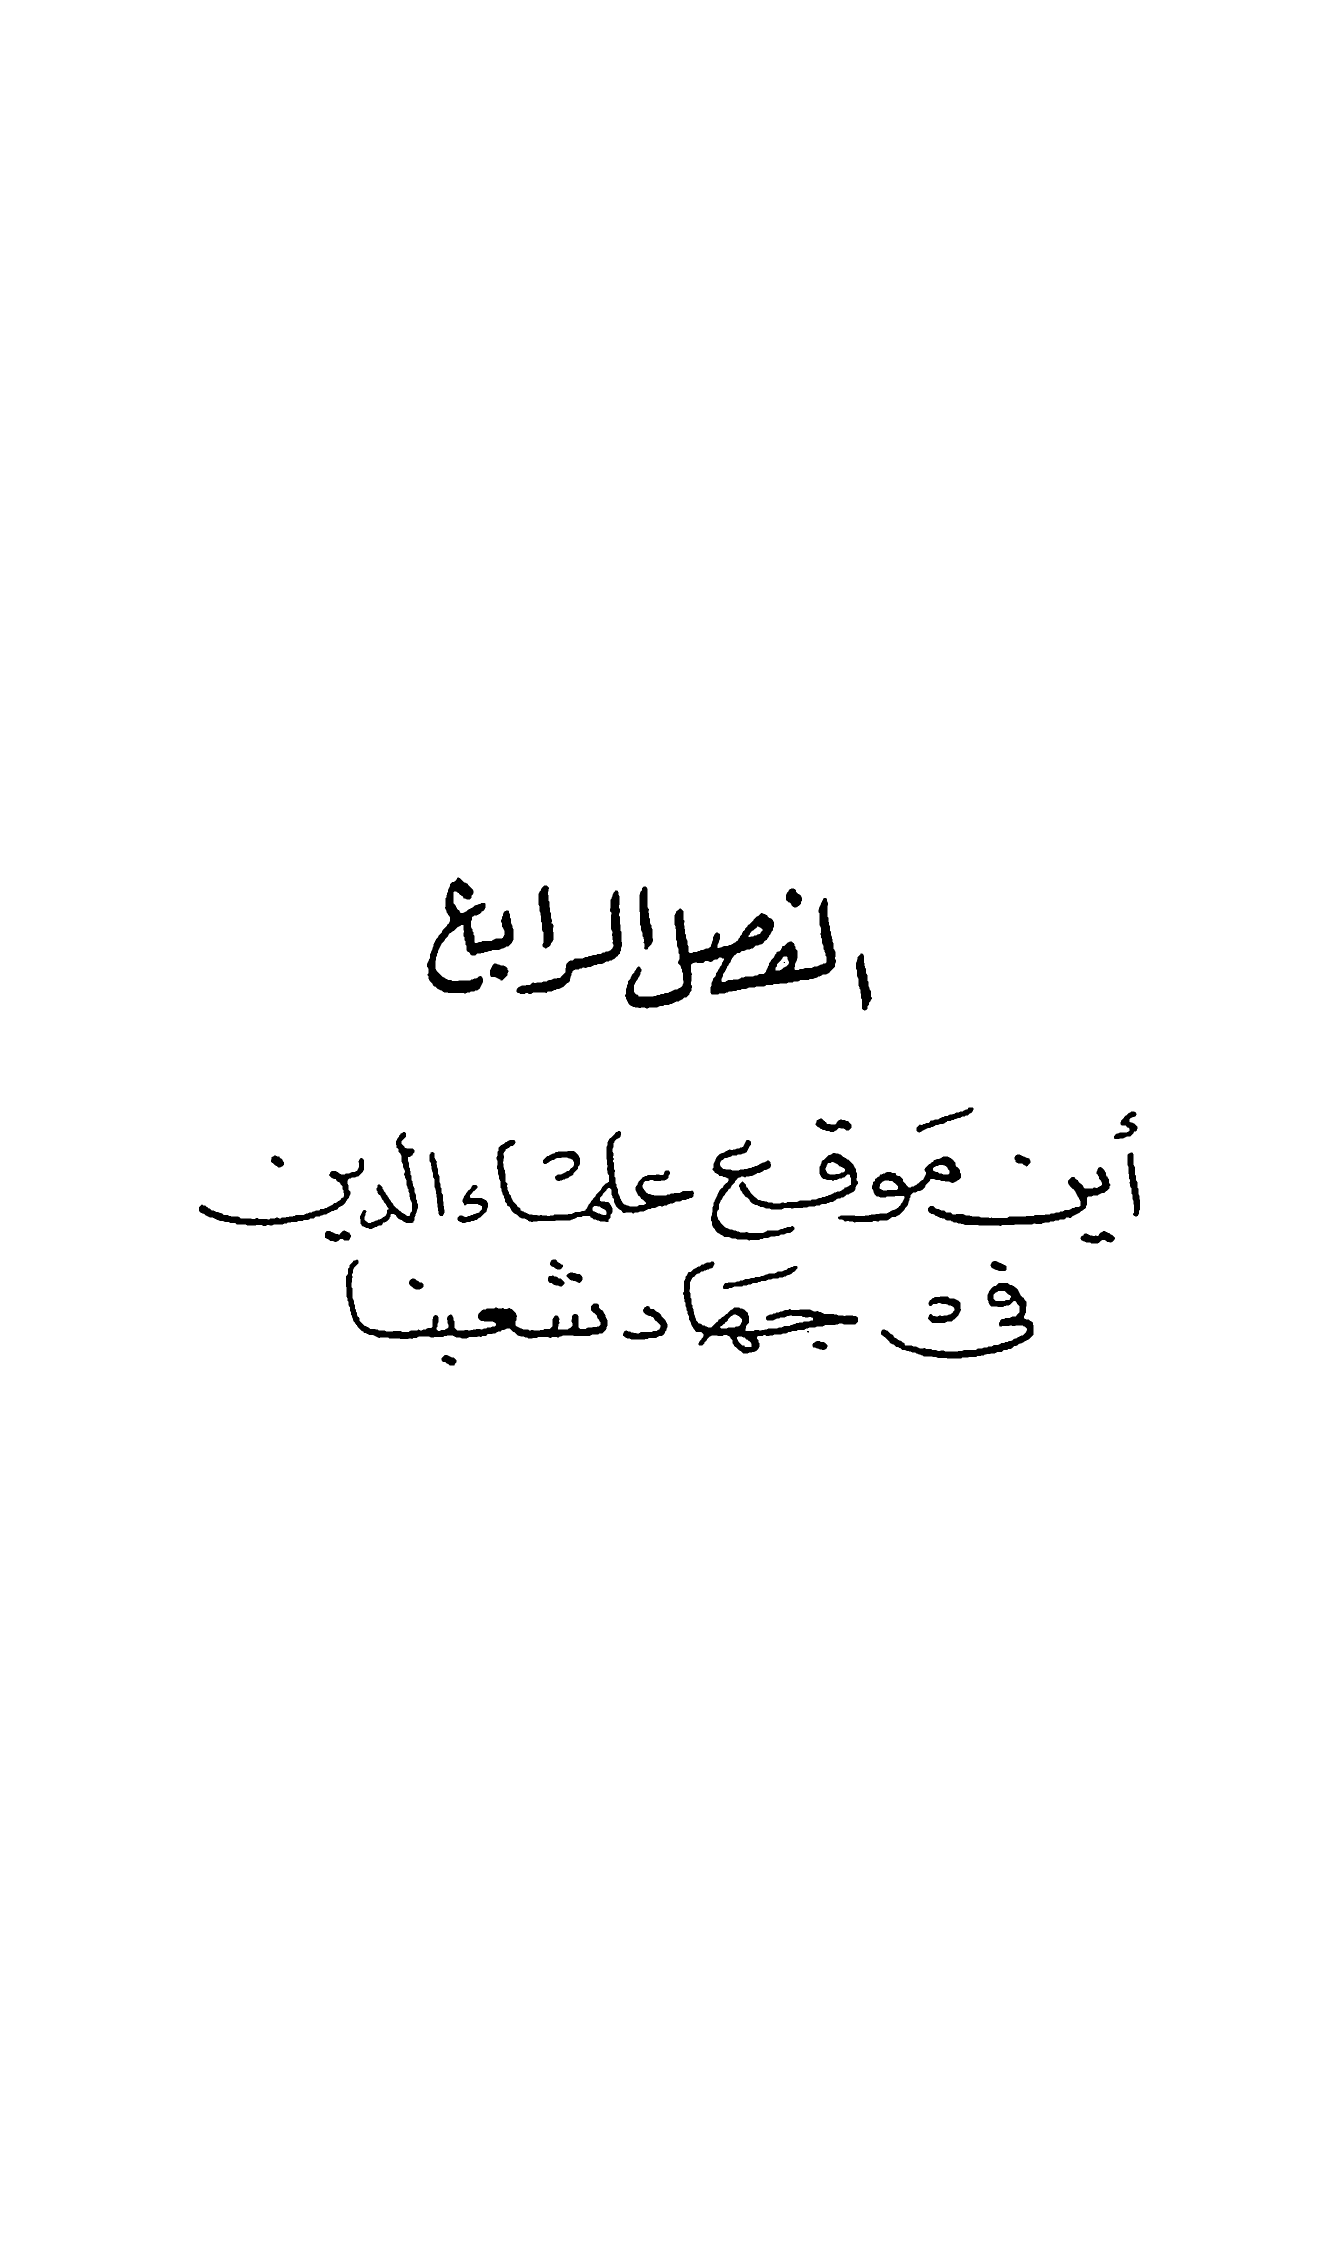 الفصل الرابع
أين مَوقع علماء الدين
في جهَاد شعبنا